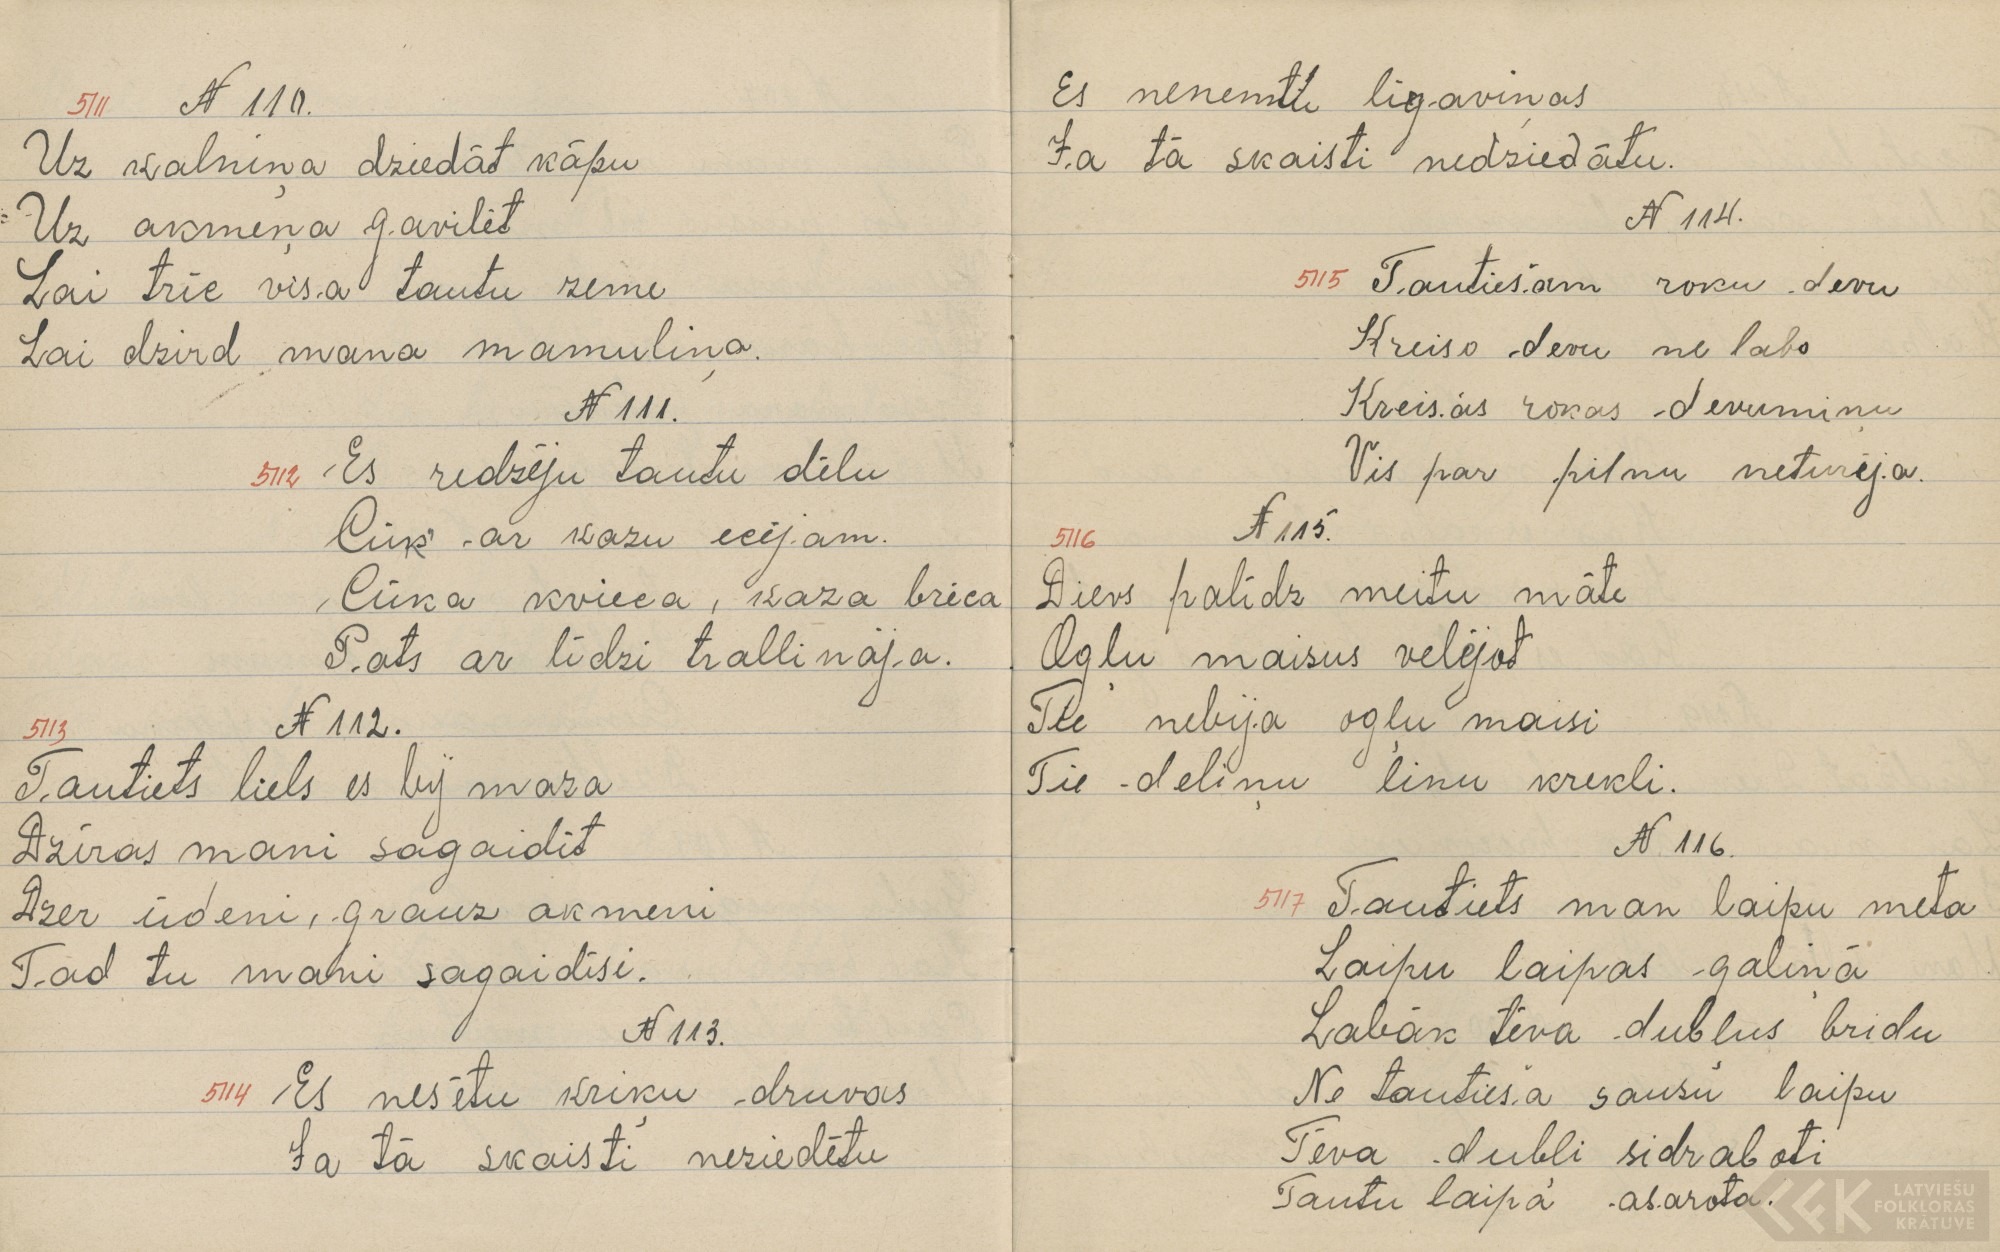 5111 № 110.
Uz kalniņa dziedāt kāpu
Uz akmeņa gavilēt
Lai trīc visa tautu zeme
Lai dzird mana mamuliņa.
№ 111.
5112 Es redzēju tautu dēlu
Cūk' ar kazu ecējam.
Cūka kvieca, kaza brēca
Pats ar līdzi trallināja.
5113 № 112.
Tautiets liels es bij maza
Dzīras mani sagaidīt
Dzer ūdeni, grauz akmeni
Tad tu mani sagaidīsi.
№ 113.
5114 Es nesētu kriķu druvas
Ja tā skaisti neziedētu
Es neņemtu līgaviņas
Ja tā skaisti nedziedātu.
№ 114.
5115 Tautiešam roku devu
Kreiso devu ne labo
Kreisās rokas devumiņu
Vis par pilnu neturēja.
5116 № 115.
Dievs palīdz meitu māte
Ogļu maisus velējot
Tie nebija ogļu maisi
Tie deliņu linu krekli.
№ 116.
5117 Tautiets man laipu meta
Laipu laipas galiņā
Labāk tēva dubļus bridu
Ne tautieša sausu laipu
Tēva dubli sidraboti
Tautu laipa asarota.
LATVIEŠU
FOLKLORAS
KRĀTUVE